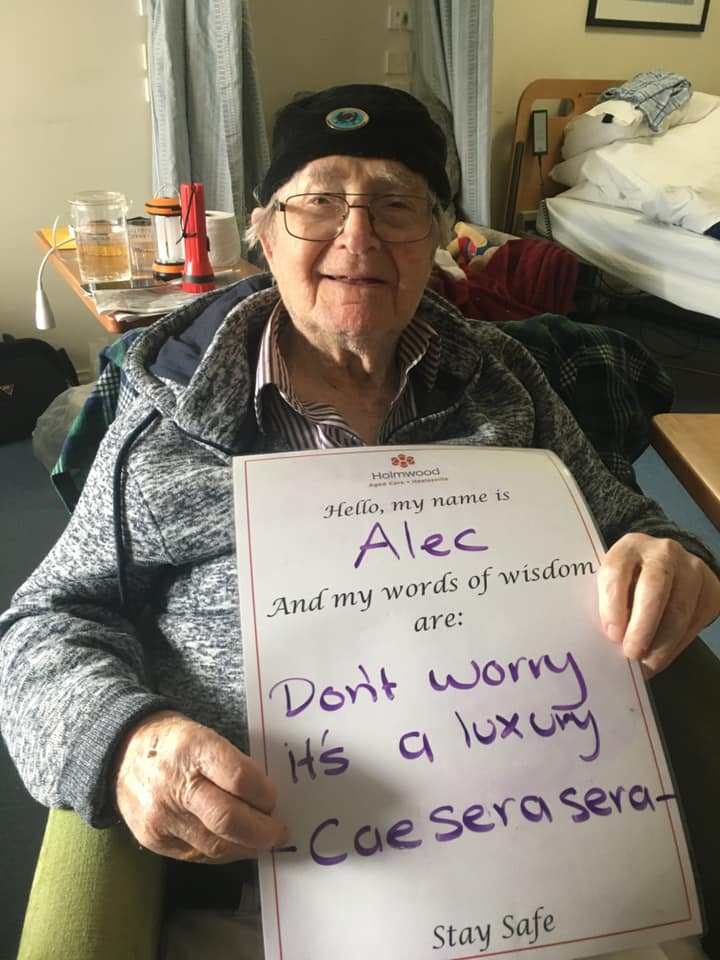 Holmwood
Aged Care • Healesville
Hello, my name is
Alec
And my words of wisdom
are:
Don't worry
it's a luxury
- Cae sera sera -
Stay Safe